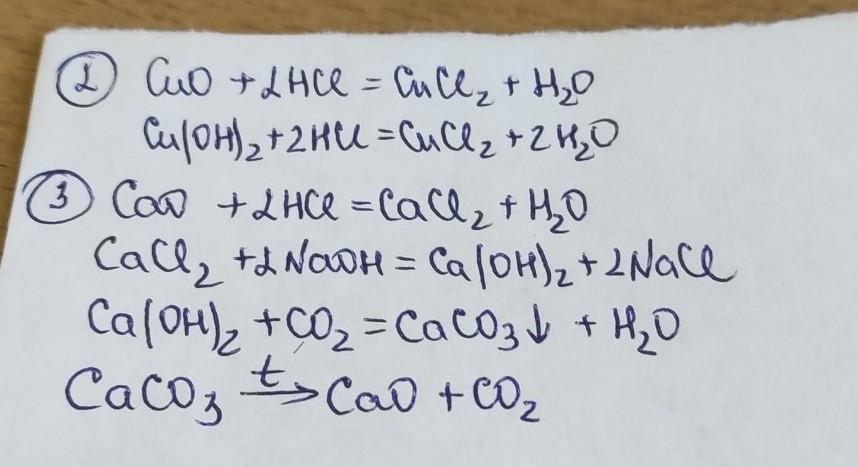 ② CuO + 2HCl = CuCl₂ + H₂O
Cu(OH)₂ + 2HCl = CuCl₂ + 2H₂O
③ CaO + 2HCl = CaCl₂ + H₂O
CaCl₂ + 2NaOH = Ca(OH)₂ + 2NaCl
Ca(OH)₂ + CO₂ = CaCO₃↓ + H₂O
CaCO₃ –t→ CaO + CO₂